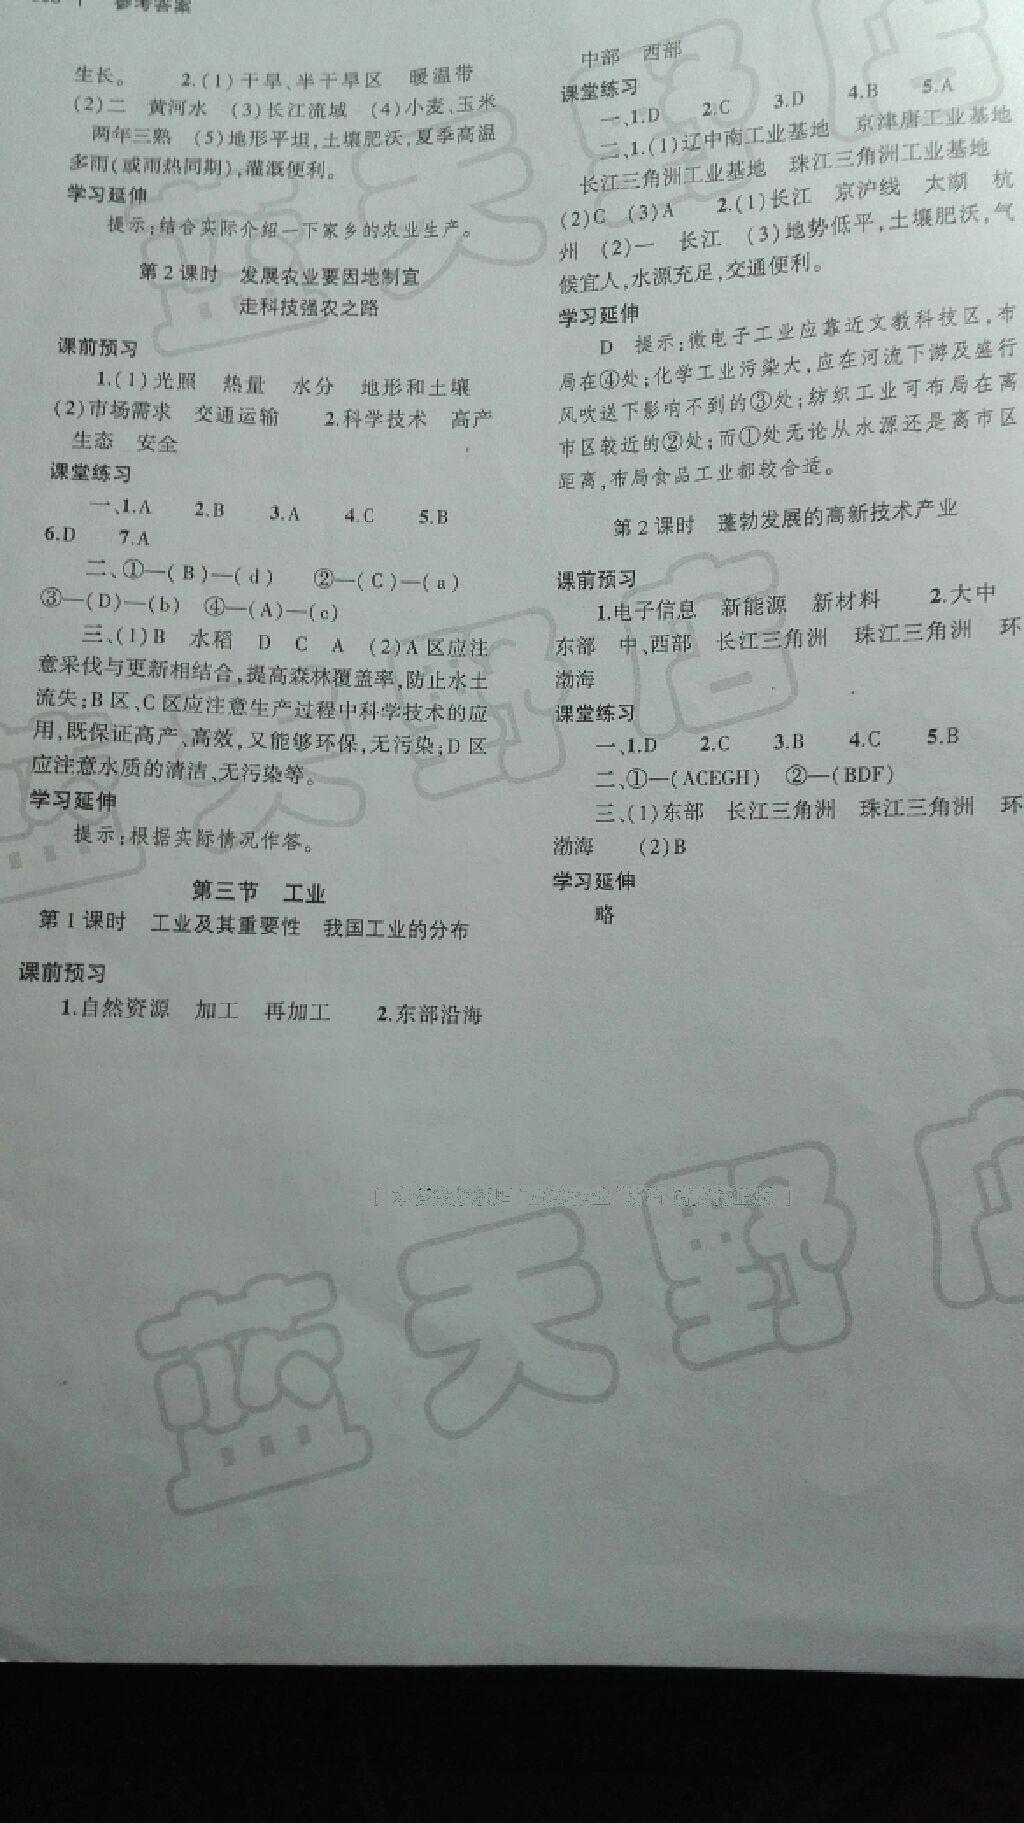 参考答案
生长。 2.(1)干旱、半干旱区 暖温带
(2)二 黄河水 (3)长江流域 (4)小麦、玉米
两年三熟 (5)地形平坦,土壤肥沃,夏季高温
多雨(或雨热同期),灌溉便利。
学习延伸
提示:结合实际介绍一下家乡的农业生产。
第2课时 发展农业要因地制宜
走科技强农之路
课前预习
1.(1)光照 热量 水分 地形和土壤
(2)市场需求 交通运输 2.科学技术 高产
生态 安全
课堂练习
一、1.A 2.B 3.A 4.C 5.B
6.D 7.A
二、①—(B)—(d) ②—(C)—(a)
③—(D)—(b) ④—(A)—(c)
三、(1)B 水稻 D C A (2)A区应注
意采伐与更新相结合,提高森林覆盖率,防止水土
流失;B区、C区应注意生产过程中科学技术的应
用,既保证高产、高效,又能够环保,无污染;D区
应注意水质的清洁、无污染等。
学习延伸
提示:根据实际情况作答。
第三节 工业
第1课时 工业及其重要性 我国工业的分布
课前预习
1.自然资源 加工 再加工 2.东部沿海
中部 西部
课堂练习
一、1.D 2.C 3.D 4.B 5.A
二、1.(1)辽中南工业基地 京津唐工业基地
长江三角洲工业基地 珠江三角洲工业基地
(2)C (3)A 2.(1)长江 京沪线 太湖 杭
州 (2)一 长江 (3)地势低平,土壤肥沃,气
候宜人,水源充足,交通便利。
学习延伸
D 提示:微电子工业应靠近文教科技区,布
局在④处;化学工业污染大,应在河流下游及盛行
风吹送下影响不到的③处;纺织工业可布局在离
市区较近的②处;而①处无论从水源还是离市区
距离,布局食品工业都较合适。
第2课时 蓬勃发展的高新技术产业
课前预习
1.电子信息 新能源 新材料 2.大中
东部 中、西部 长江三角洲 珠江三角洲 环
渤海
课堂练习
一、1.D 2.C 3.B 4.C 5.B
二、①—(ACEGH) ②—(BDF)
三、(1)东部 长江三角洲 珠江三角洲 环
渤海 (2)B
学习延伸
略
蓝天野店
蓝天野店
蓝天野店